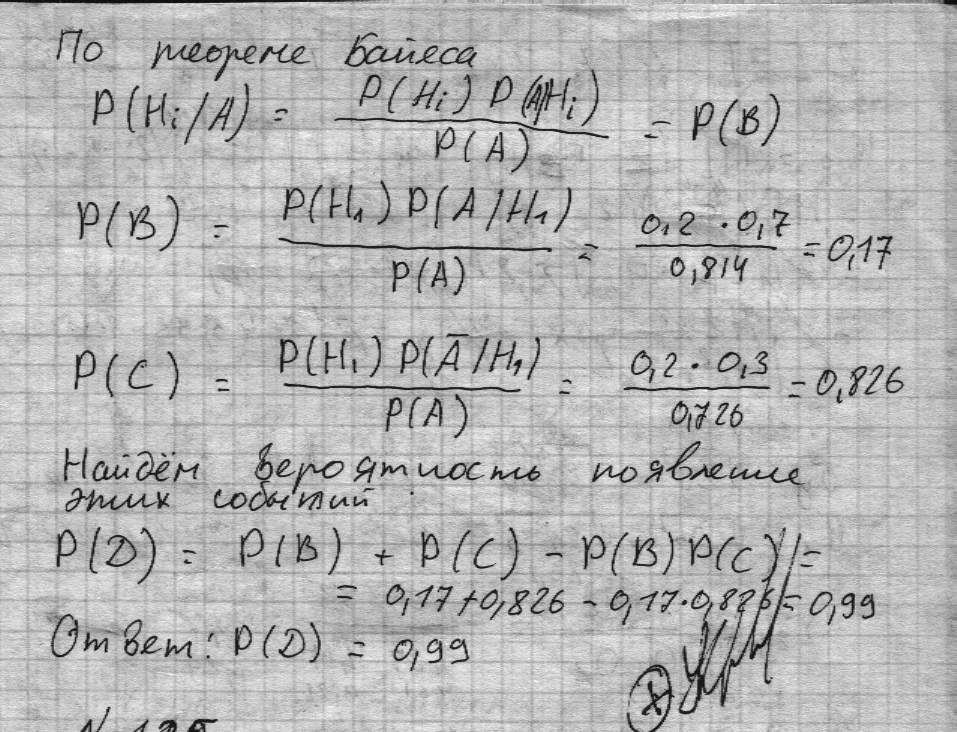 По теореме Байеса
P(Hi/A) = P(Hi) P(A/Hi) / P(A) = P(B)
P(B) = P(H1) P(A/H1) / P(A) = 0,2 · 0,7 / 0,814 = 0,17
P(C) = P(H1) P(Ā/H1) / P(A) = 0,2 · 0,3 / 0,726 = 0,826
Найдём вероятность появление
этих событий
P(D) = P(B) + P(C) - P(B) P(C) =
= 0,17+0,826 - 0,17·0,826 = 0,99
Ответ: P(D) = 0,99